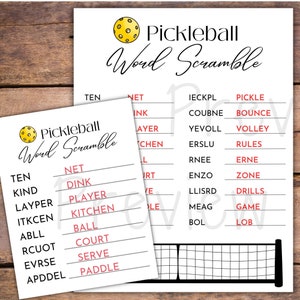 Pickleball
Word Scramble
TEN NET IECKPL PICKLE
DINK COUBNE BOUNCE
AYER YEVOLL VOLLEY
CHEN ERSLU RULES
ALL RNEE ERNE
URT ENZO ZONE
RVE LLISRD DRILLS
DDLE MEAG GAME
BOL LOB
Pickleball
Word Scramble
TEN NET
KIND DINK
LAYPER PLAYER
ITKCEN KITCHEN
ABLL BALL
RCUOT COURT
EVRSE SERVE
APDDEL PADDLE
Preview
Preview